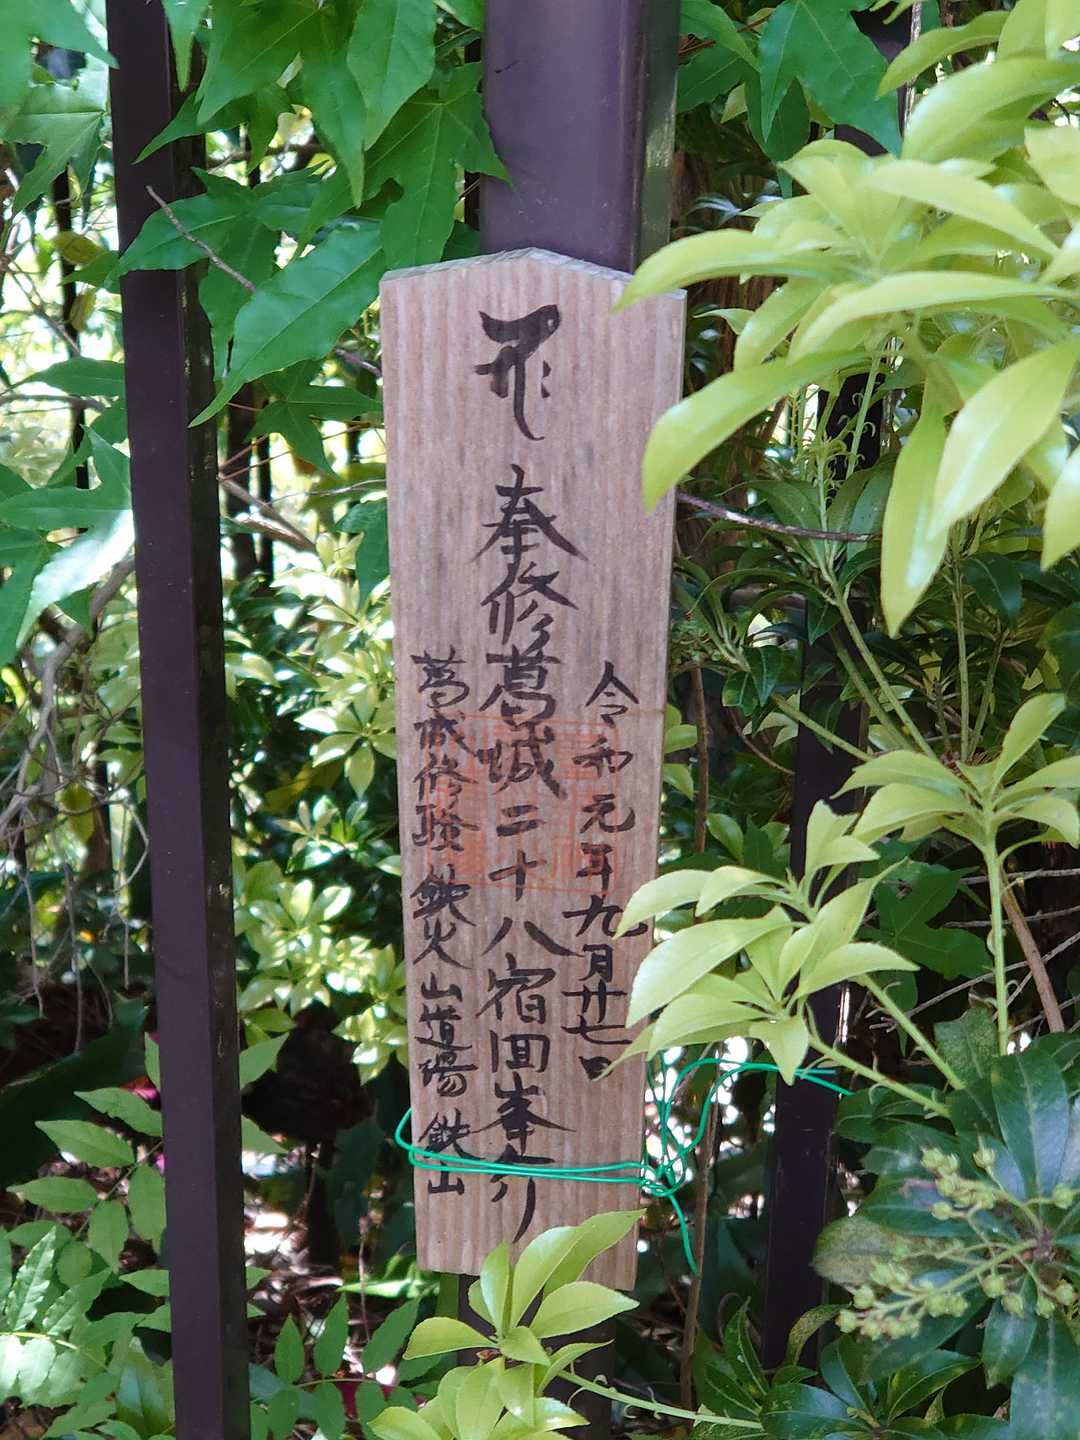 令和元年九月廿七日
奉修葛城二十八宿回峯行
葛城修験 鉄火山道場 鉄山